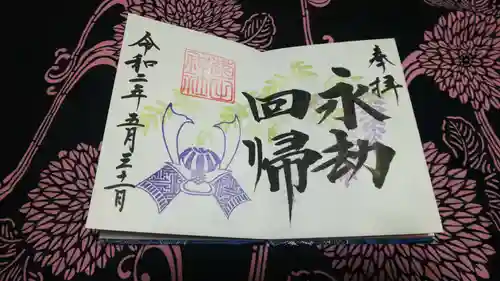 奉拝
永劫
回帰
令和二年五月三十一日